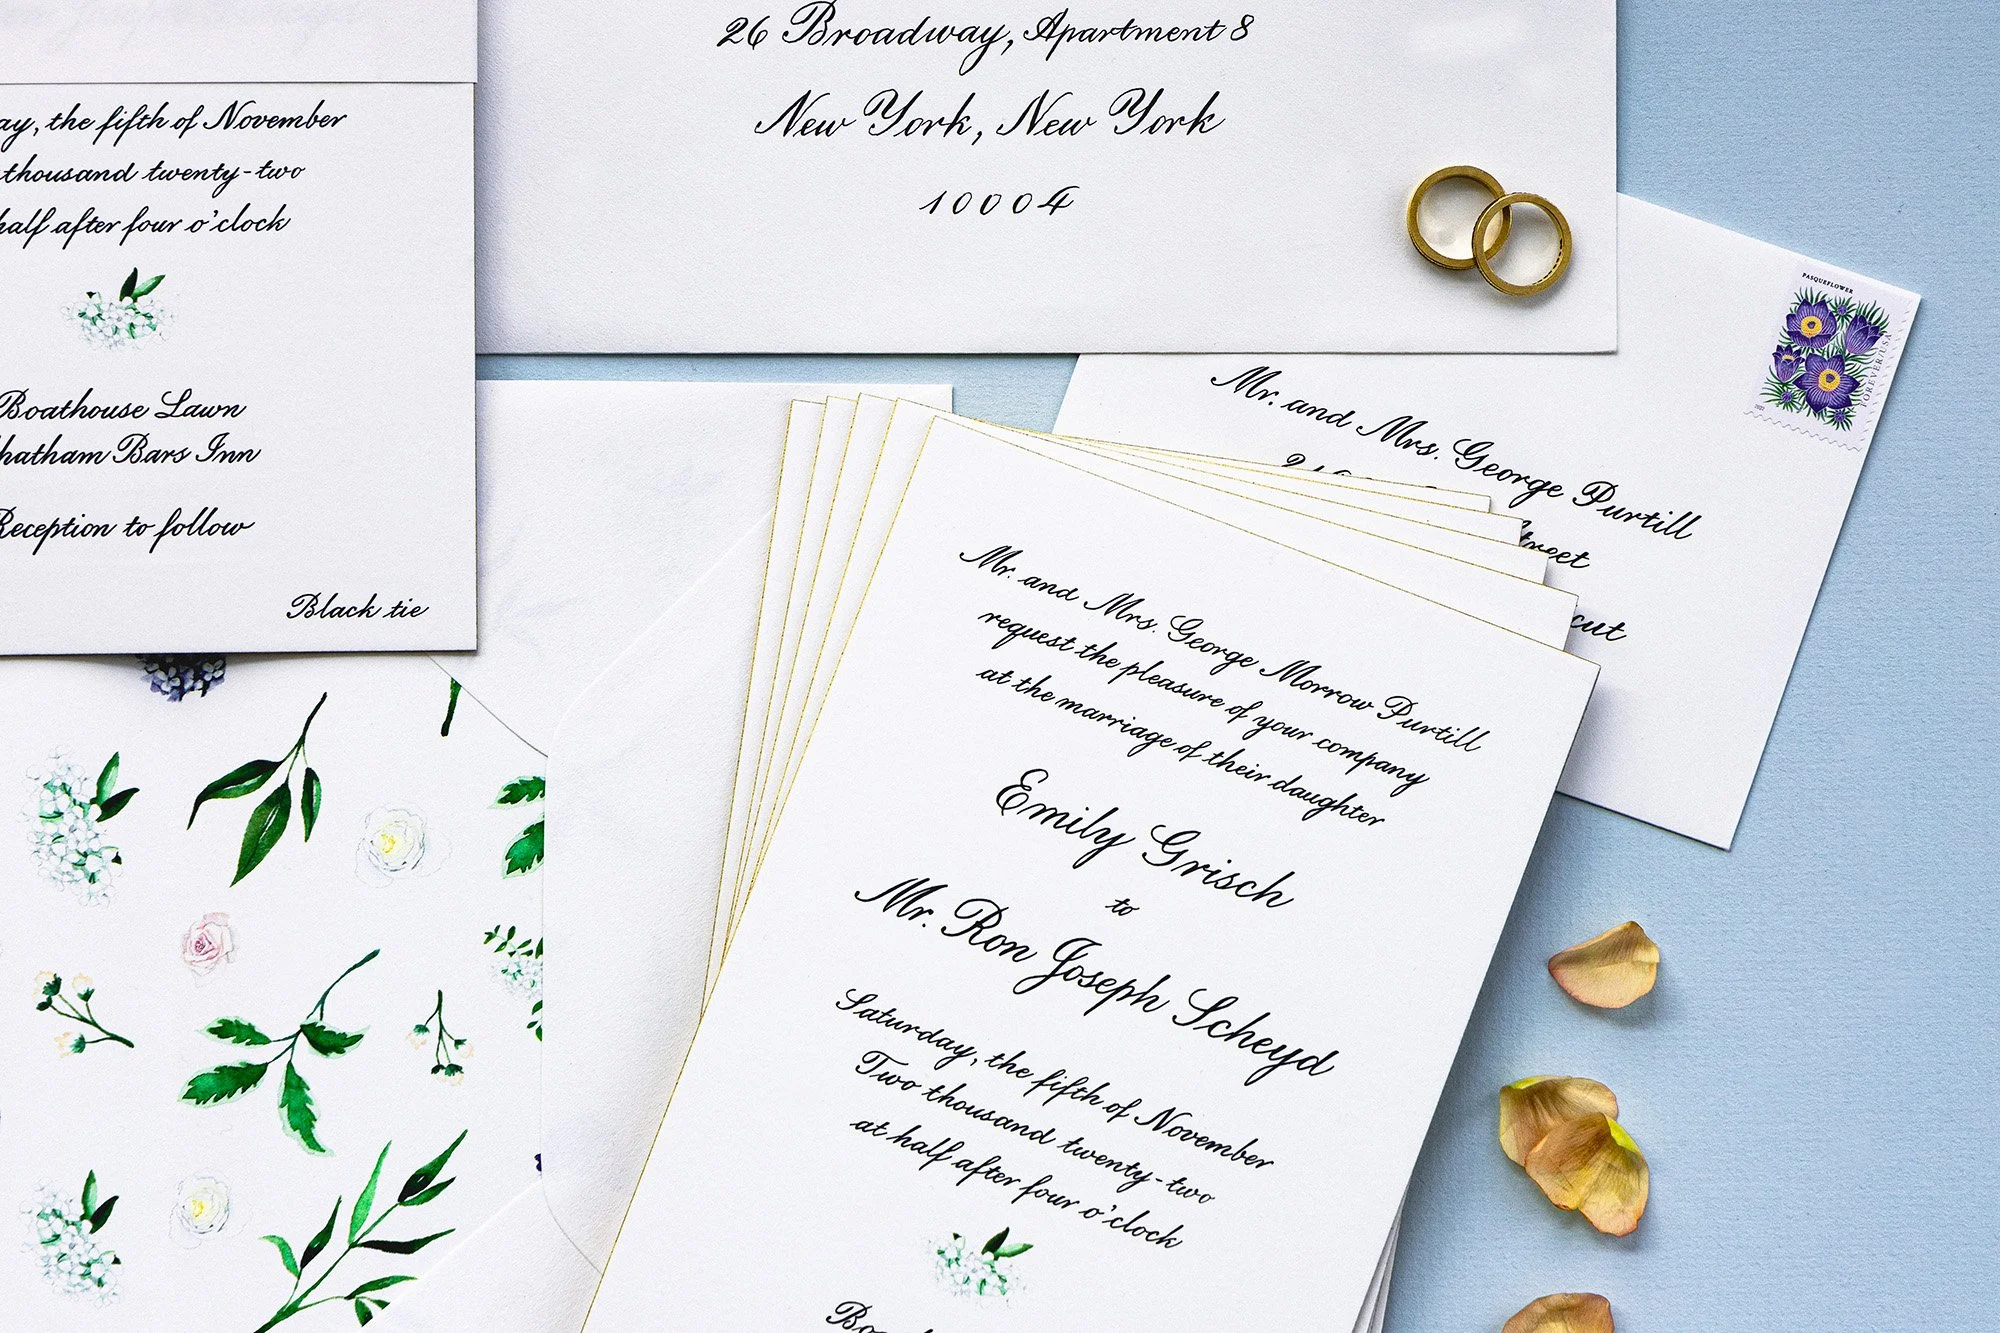 26 Broadway, Apartment 8
New York, New York
10004
the fifth of November
thousand twenty-two
half after four o'clock
Boathouse Lawn
Bars Inn
Reception to follow
Black tie
PASQUEFLOWER
FOREVER/USA
Mr. and Mrs. George Purtill
Street
Mr. and Mrs. George Morrow Purtill
request the pleasure of your company
at the marriage of their daughter
Emily Grisch
to
Mr. Ron Joseph Scheyd
Saturday, the fifth of November
Two thousand twenty-two
at half after four o'clock